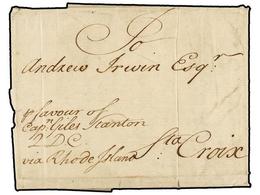 To
Andrew Irwin Esqr
pr favour of
Capn Giles Stanton
Q D C
via Rhode Island
Sta Croix